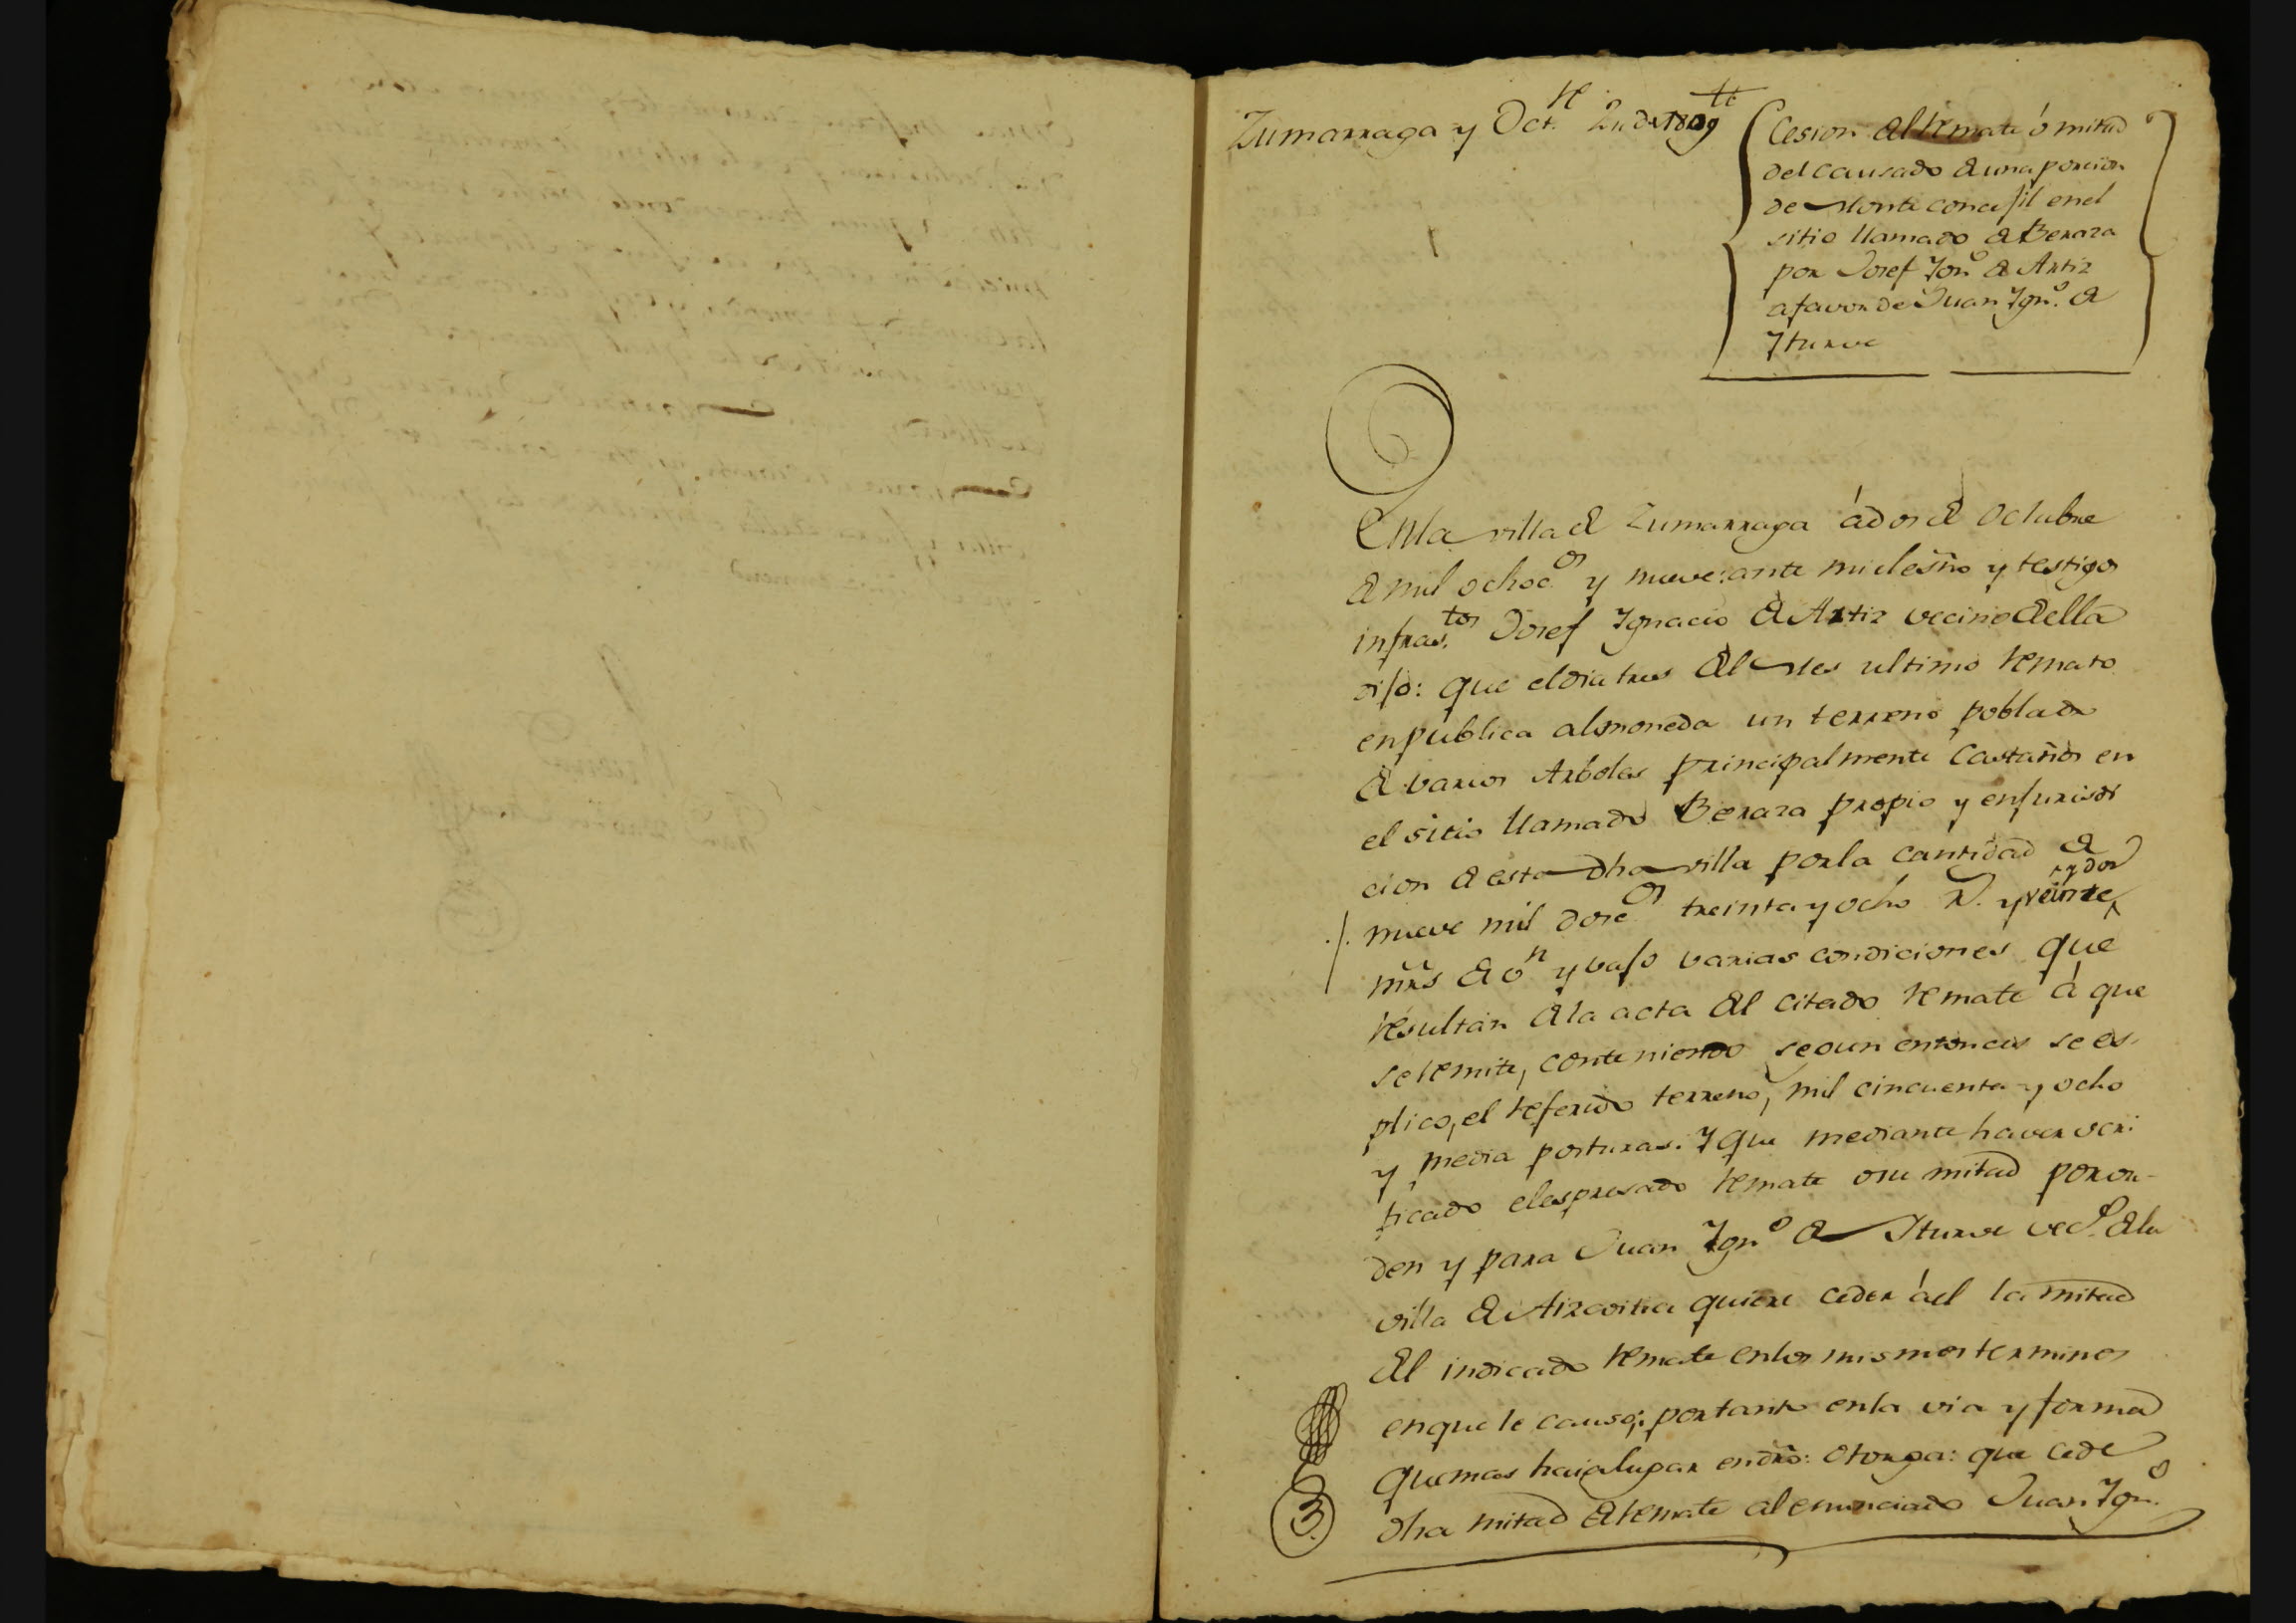 Zumarraga y Oct.re 2 de 1809
Cesion del remate ó mitad
del causado de una porcion
de Monte concejil en el
sitio llamado de Beraza
por Josef Ign.o de Artiz
a favor de Juan Ign.o de
Yturve
En la villa de Zumarraga á dos de Octubre
de mil ochoc.os y nueve: ante mi el esño y testigos
infras.tos Josef Ignacio de Artiz vecino de ella
dijo: que el dia tres del Mes ultimo remato
en publica almoneda un terreno poblado
de varios Arboles principalmente Castaños en
el sitio llamado Beraza propio y en jurisdi
cion de esta dha villa por la cantidad de
nueve mil dosc.os treinta y ocho R.s y veinte y dos
mrs de v.n y vajo varias condiciones que
resultan de la acta del citado remate á que
se remite, conteniendo segun entonces se es-
plico, el referido terreno, mil cincuenta y ocho
y media posturas. Y que mediante haver veri
ficado el espresado remate o su mitad por or-
den y para Juan Ign.o de Yturve vec.o de la
villa de Azcoitia quiere ceder á el la mitad
del indicado remate en los mismos terminos
en que le causó; por tanto en la via y forma
que mas haia lugar en dro: Otorga: que cede
dha mitad de remate al enunciado Juan Ign.o
3.